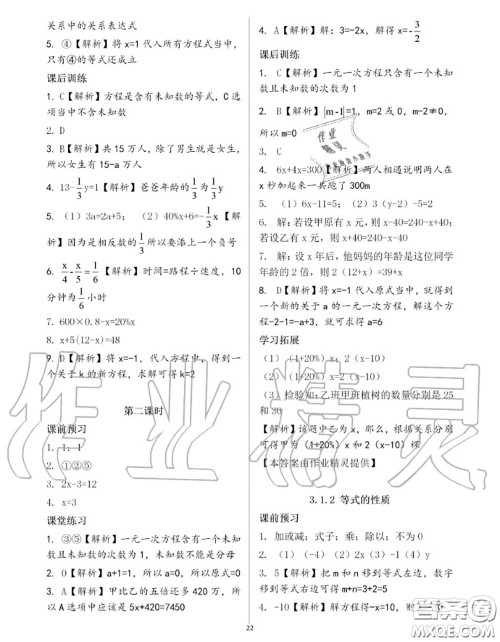 关系中的关系表达式
5. ④【解析】将 x=1 代入所有方程式当中，
只有④的等式还成立
课后训练
1. C【解析】方程是含有未知数的等式，C 选
项当中不含未知数
2. D
3. B【解析】共 15 万人，除了男生就是女生，
所以女生有 15-a 万人
4. 13-1/3y=1【解析】爸爸年龄的1/3为1/3y
5. （1）3a=2a+5；（2）40%x+6=-1/3x【解
析】因为是相反数的1/3所以要添上一个负号
6. x/4-x/5=1/6【解析】时间=路程÷速度，10
分钟为1/6小时
7. 600×0.8-x=20%x
8. x+5(12-x)=48
9. D【解析】将 x=-1，代入方程中，得到一
个关于 k 的新方程，求解可得 k=2
第二课时
课前预习
1. 1，1
2. ①②⑤
3. 2x-3=12
4. x=3
课堂练习
1. ③⑤【解析】一元一次方程含有一个未知
数且未知数的次数为 1，未知数不能是分母
2. 0【解析】a+1=1，所以 a=0，所以原式=0
3. A【解析】甲比乙的五倍还多 420 万，所
以 A 选项中应该是 5x+420=7450
4. A【解析】解：3=-2x，解得 x=-3/2
课后训练
1. C【解析】一元一次方程只含有一个未知
数且未知数的次数为 1
2. B【解析】|m-1|=1，m=2 或 0，m-2≠0，
所以 m=0
3. C
4. 6x+4x=300【解析】两人相遇说明两人在
x 秒加起来一共跑了 300m
5. （1）6x-11=5；（2）3（y-2）-5=2
6. 解：若设甲原有 x 元，则 x-40=240-x+40；
若设乙有 x 元，则 x+40=240-x-40
7. 解：设 x 年后，他妈妈的年龄是这位同学
年龄的 2 倍，则 2（12+x）=39+x
8. D【解析】将 x=-1 代入原式当中，就得
到一个新的关于 a 的一元一次方程，解这个方
程-2-1=-a+3，就可求得 a=6
学习拓展
（1）（1+20%）x；2（x-10）
（2）（1+20%）x=2（x-10）
（3）检验知：乙班甲班植树的数量分别是 25
和 30
【解析】该题中乙为 x，那么，根据关系分别
可得甲为（1+20%）x 和 2（x-10）棵
【本答案由作业精灵提供】
3.1.2 等式的性质
课前预习
1. 加或减；式子；乘；除以；不为 0
2. （1）（-4）（2）2x（3）（-1）（4）
3. 5【解析】把 m 和 n 移到等式左边，数字
移到等式右边可得 m+n=3+2=5
4. -10【解析】解方程得-x=10，则
22
作业精灵